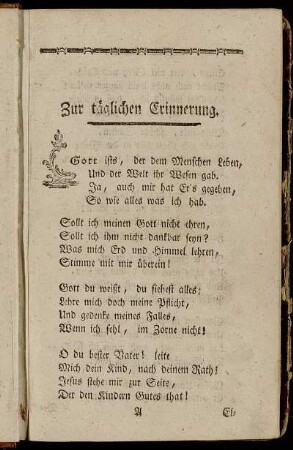 Zur täglichen Erinnerung.
Gott ists, der dem Menschen Leben,
Und der Welt ihr Wesen gab.
Ja, auch mir hat Er's gegeben,
So wie alles was ich hab.
Sollt ich meinen Gott nicht ehren,
Sollt ich ihm nicht dankbar seyn?
Was mich Erd und Himmel lehren,
Stimme mit mir überein!
Gott du weißt, du siehest alles;
Lehre mich doch meine Pflicht,
Und gedenke meines Falles,
Wenn ich fehl, im Zorne nicht!
O du bester Vater! leite
Mich dein Kind, nach deinem Rath!
Jesus stehe mir zur Seite,
Der den Kindern Gutes that!
A El-